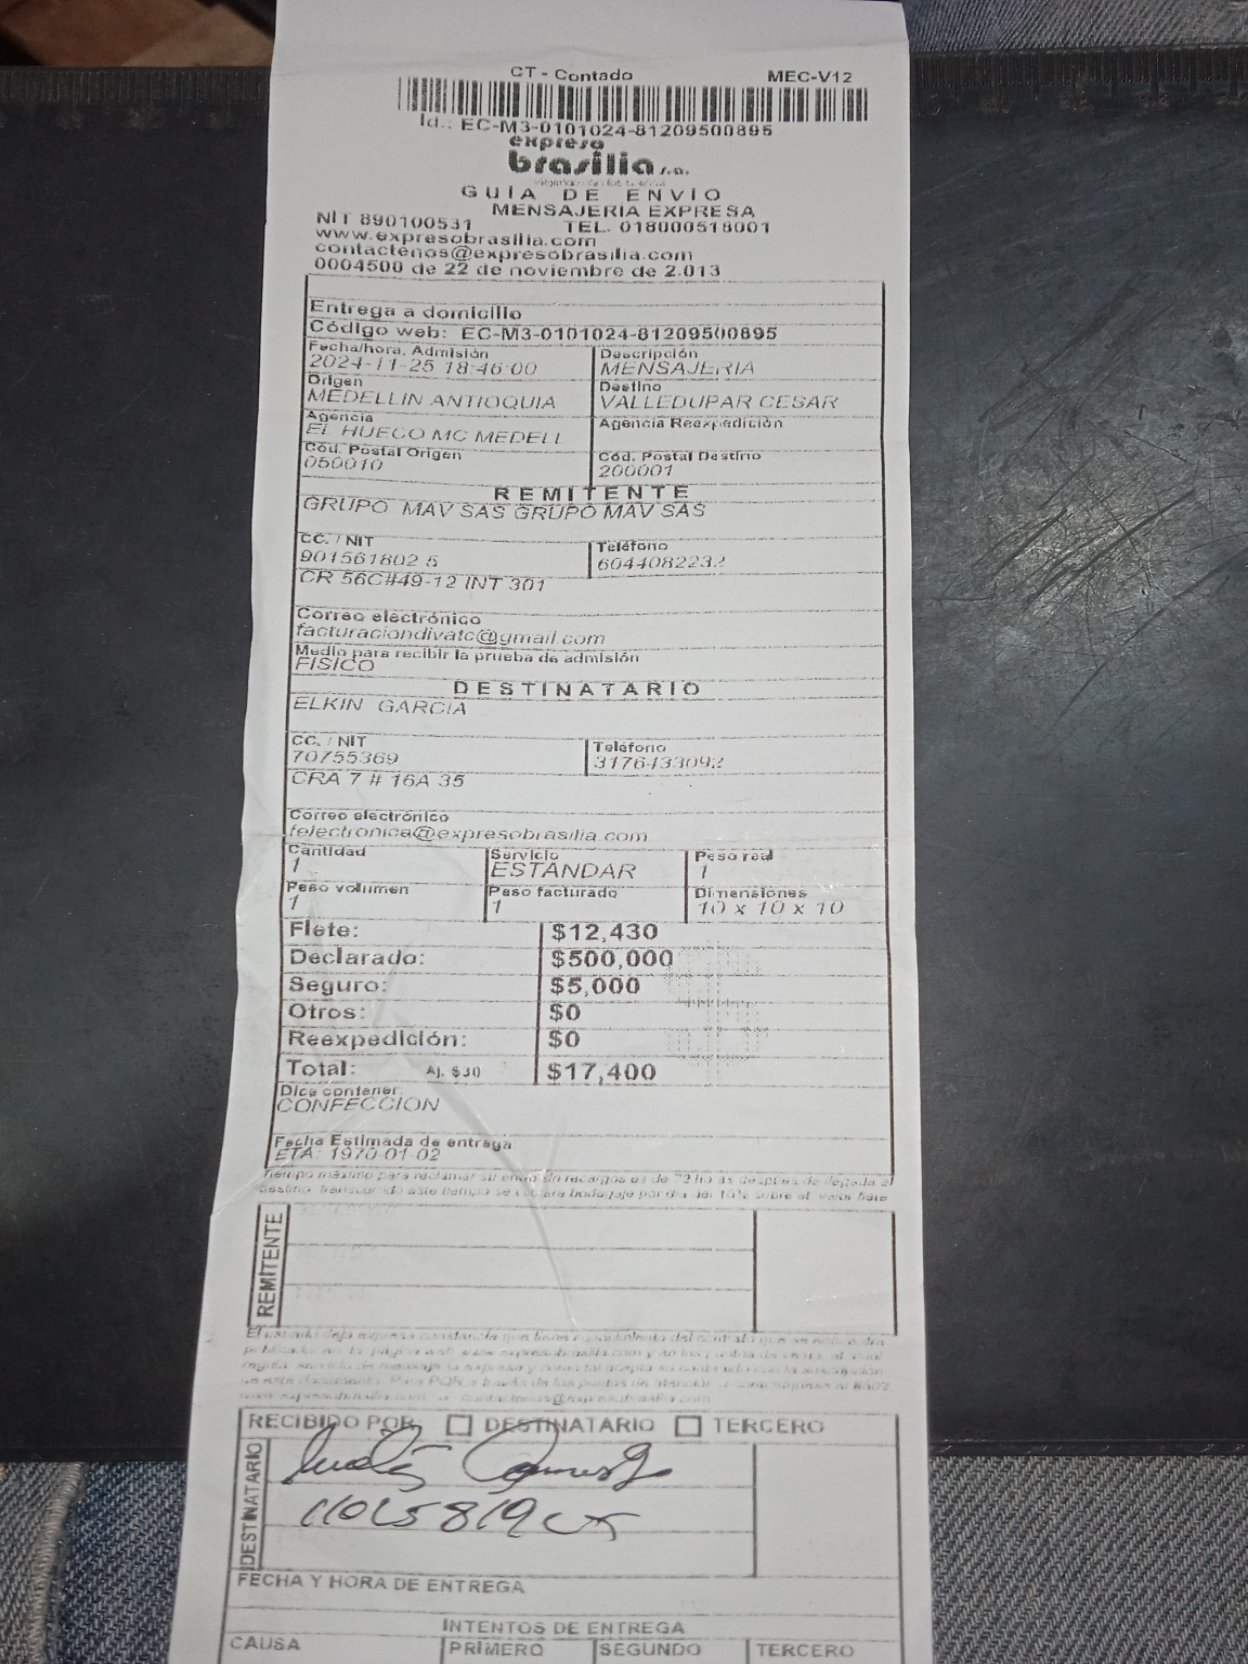 CT - Contado MEC-V12
Id.: EC-M3-0101024-81209500895
expreso
brasilia s.a.
GUIA DE ENVIO
MENSAJERIA EXPRESA
NIT 890100531 TEL. 018000518001
www.expresobrasilia.com
contactenos@expresobrasilia.com
0004500 de 22 de noviembre de 2.013
Entrega a domicilio
Código web: EC-M3-0101024-81209500895
Fecha/hora, Admisión Descripción
2024-11-25 18:46:00 MENSAJERIA
Origen Destino
MEDELLIN ANTIOQUIA VALLEDUPAR CESAR
Agencia Agencia Reexpedición
EL HUECO MC MEDELL
Cód. Postal Origen Cód. Postal Destino
050010 200001
REMITENTE
GRUPO MAV SAS GRUPO MAV SAS
CC. / NIT Teléfono
901561802 5 6044082232
CR 56C#49-12 INT 301
Correo electrónico
facturaciondivatc@gmail.com
Medio para recibir la prueba de admisión
FISICO
DESTINATARIO
ELKIN GARCIA
CC. / NIT Teléfono
70755369 3176433092
CRA 7 # 16A 35
Correo electrónico
felectronica@expresobrasilia.com
Cantidad Servicio Peso real
1 ESTANDAR 1
Peso volumen Peso facturado Dimensiones
1 1 10 x 10 x 10
Flete: $12,430
Declarado: $500,000
Seguro: $5,000
Otros: $0
Reexpedición: $0
Total: Aj. $30 $17,400
Dice contener:
CONFECCION
Fecha Estimada de entrega
ETA: 1970-01-02
Tiempo máximo para reclamar su envio sin recargos es de 72 horas despues de llegada al
REMITENTE
RECIBIDO POR DESTINATARIO TERCERO
DESTINATARIO
FECHA Y HORA DE ENTREGA
INTENTOS DE ENTREGA
CAUSA PRIMERO SEGUNDO TERCERO